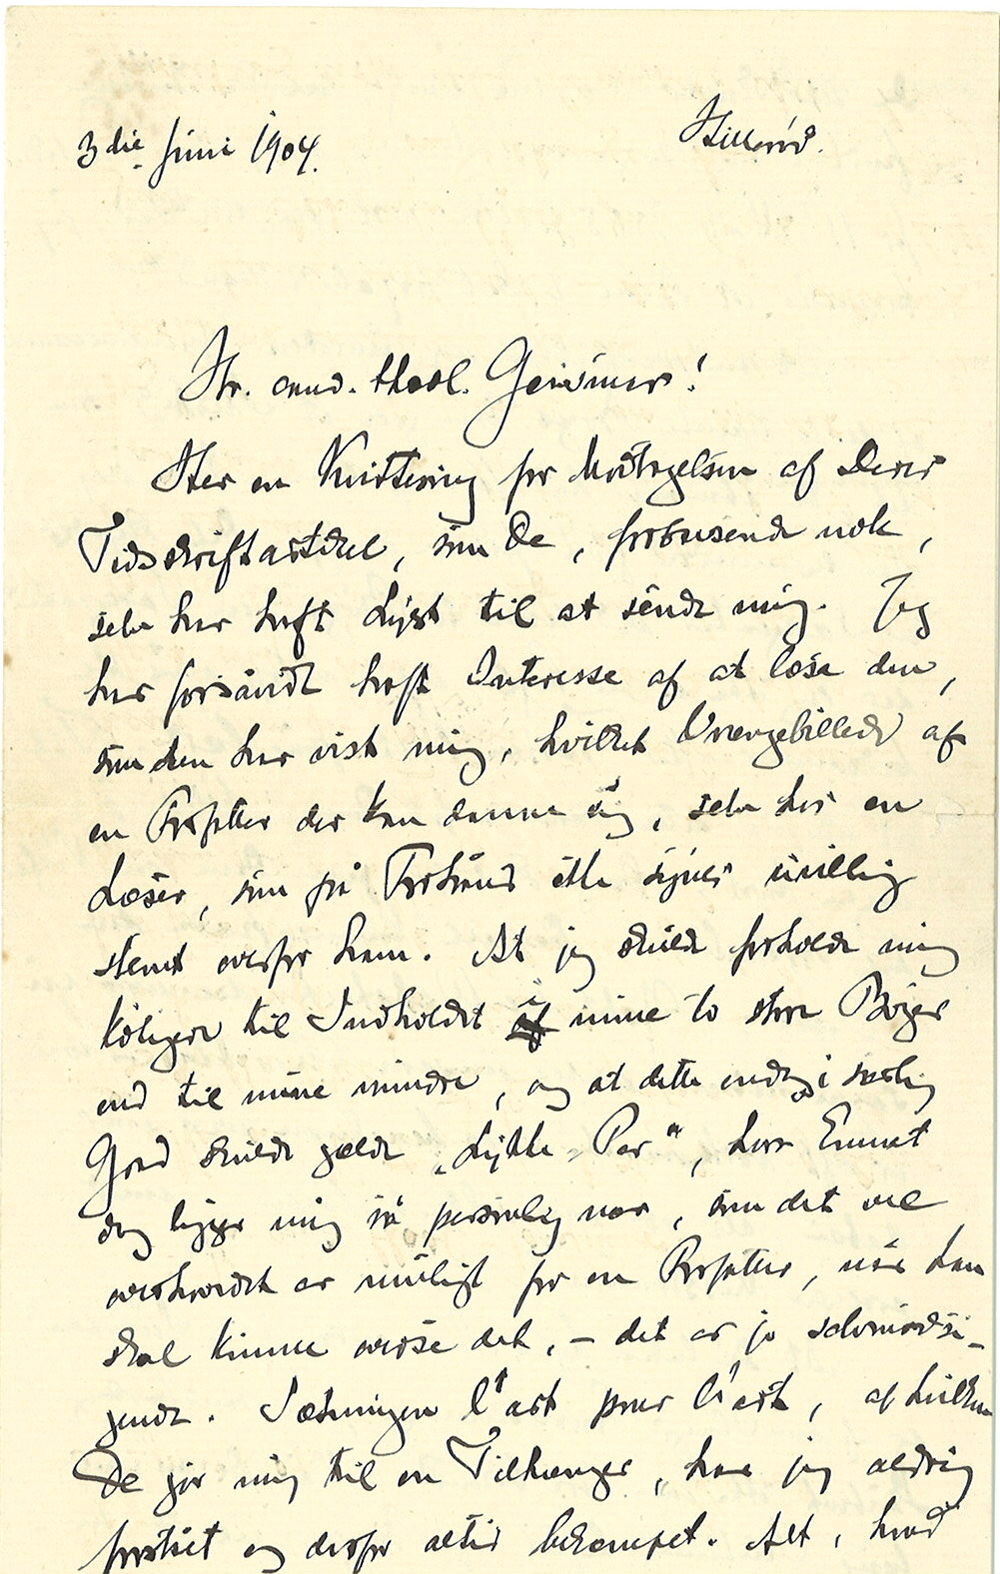 3die Juni 1904.
Hillerød.
Hr. cand. theol. Geismar!
Her en Kvittering for Modtagelsen af Deres
Tidsskriftartikel, som De, forbavsende nok,
selv har haft Lyst til at sende mig. Jeg
har forsåvidt haft Interesse af at læse den,
som den har vist mig, hvilket Vrængebillede af
en Forfatter der kan danne sig, selv hos en
Læser, som på Forhånd ikke synes uvillig
stemt overfor ham. At jeg skulde forholde mig
køligere til Indholdet i mine to store Bøger
end til mine mindre, og at dette endog i særlig
Grad skulde gælde "Lykke-Per", hvis Emnet
dog ligger mig så personlig nær, som det vel
overhovedet er muligt for en Forfatter, når han
skal kunne overse det, – det er jo selvmodsi-
gende. Sætningen l'art pour l'art, af hvilken
De gør mig til en Tilhænger, har jeg aldrig
forstået og derfor altid bekæmpet. Alt, hvad